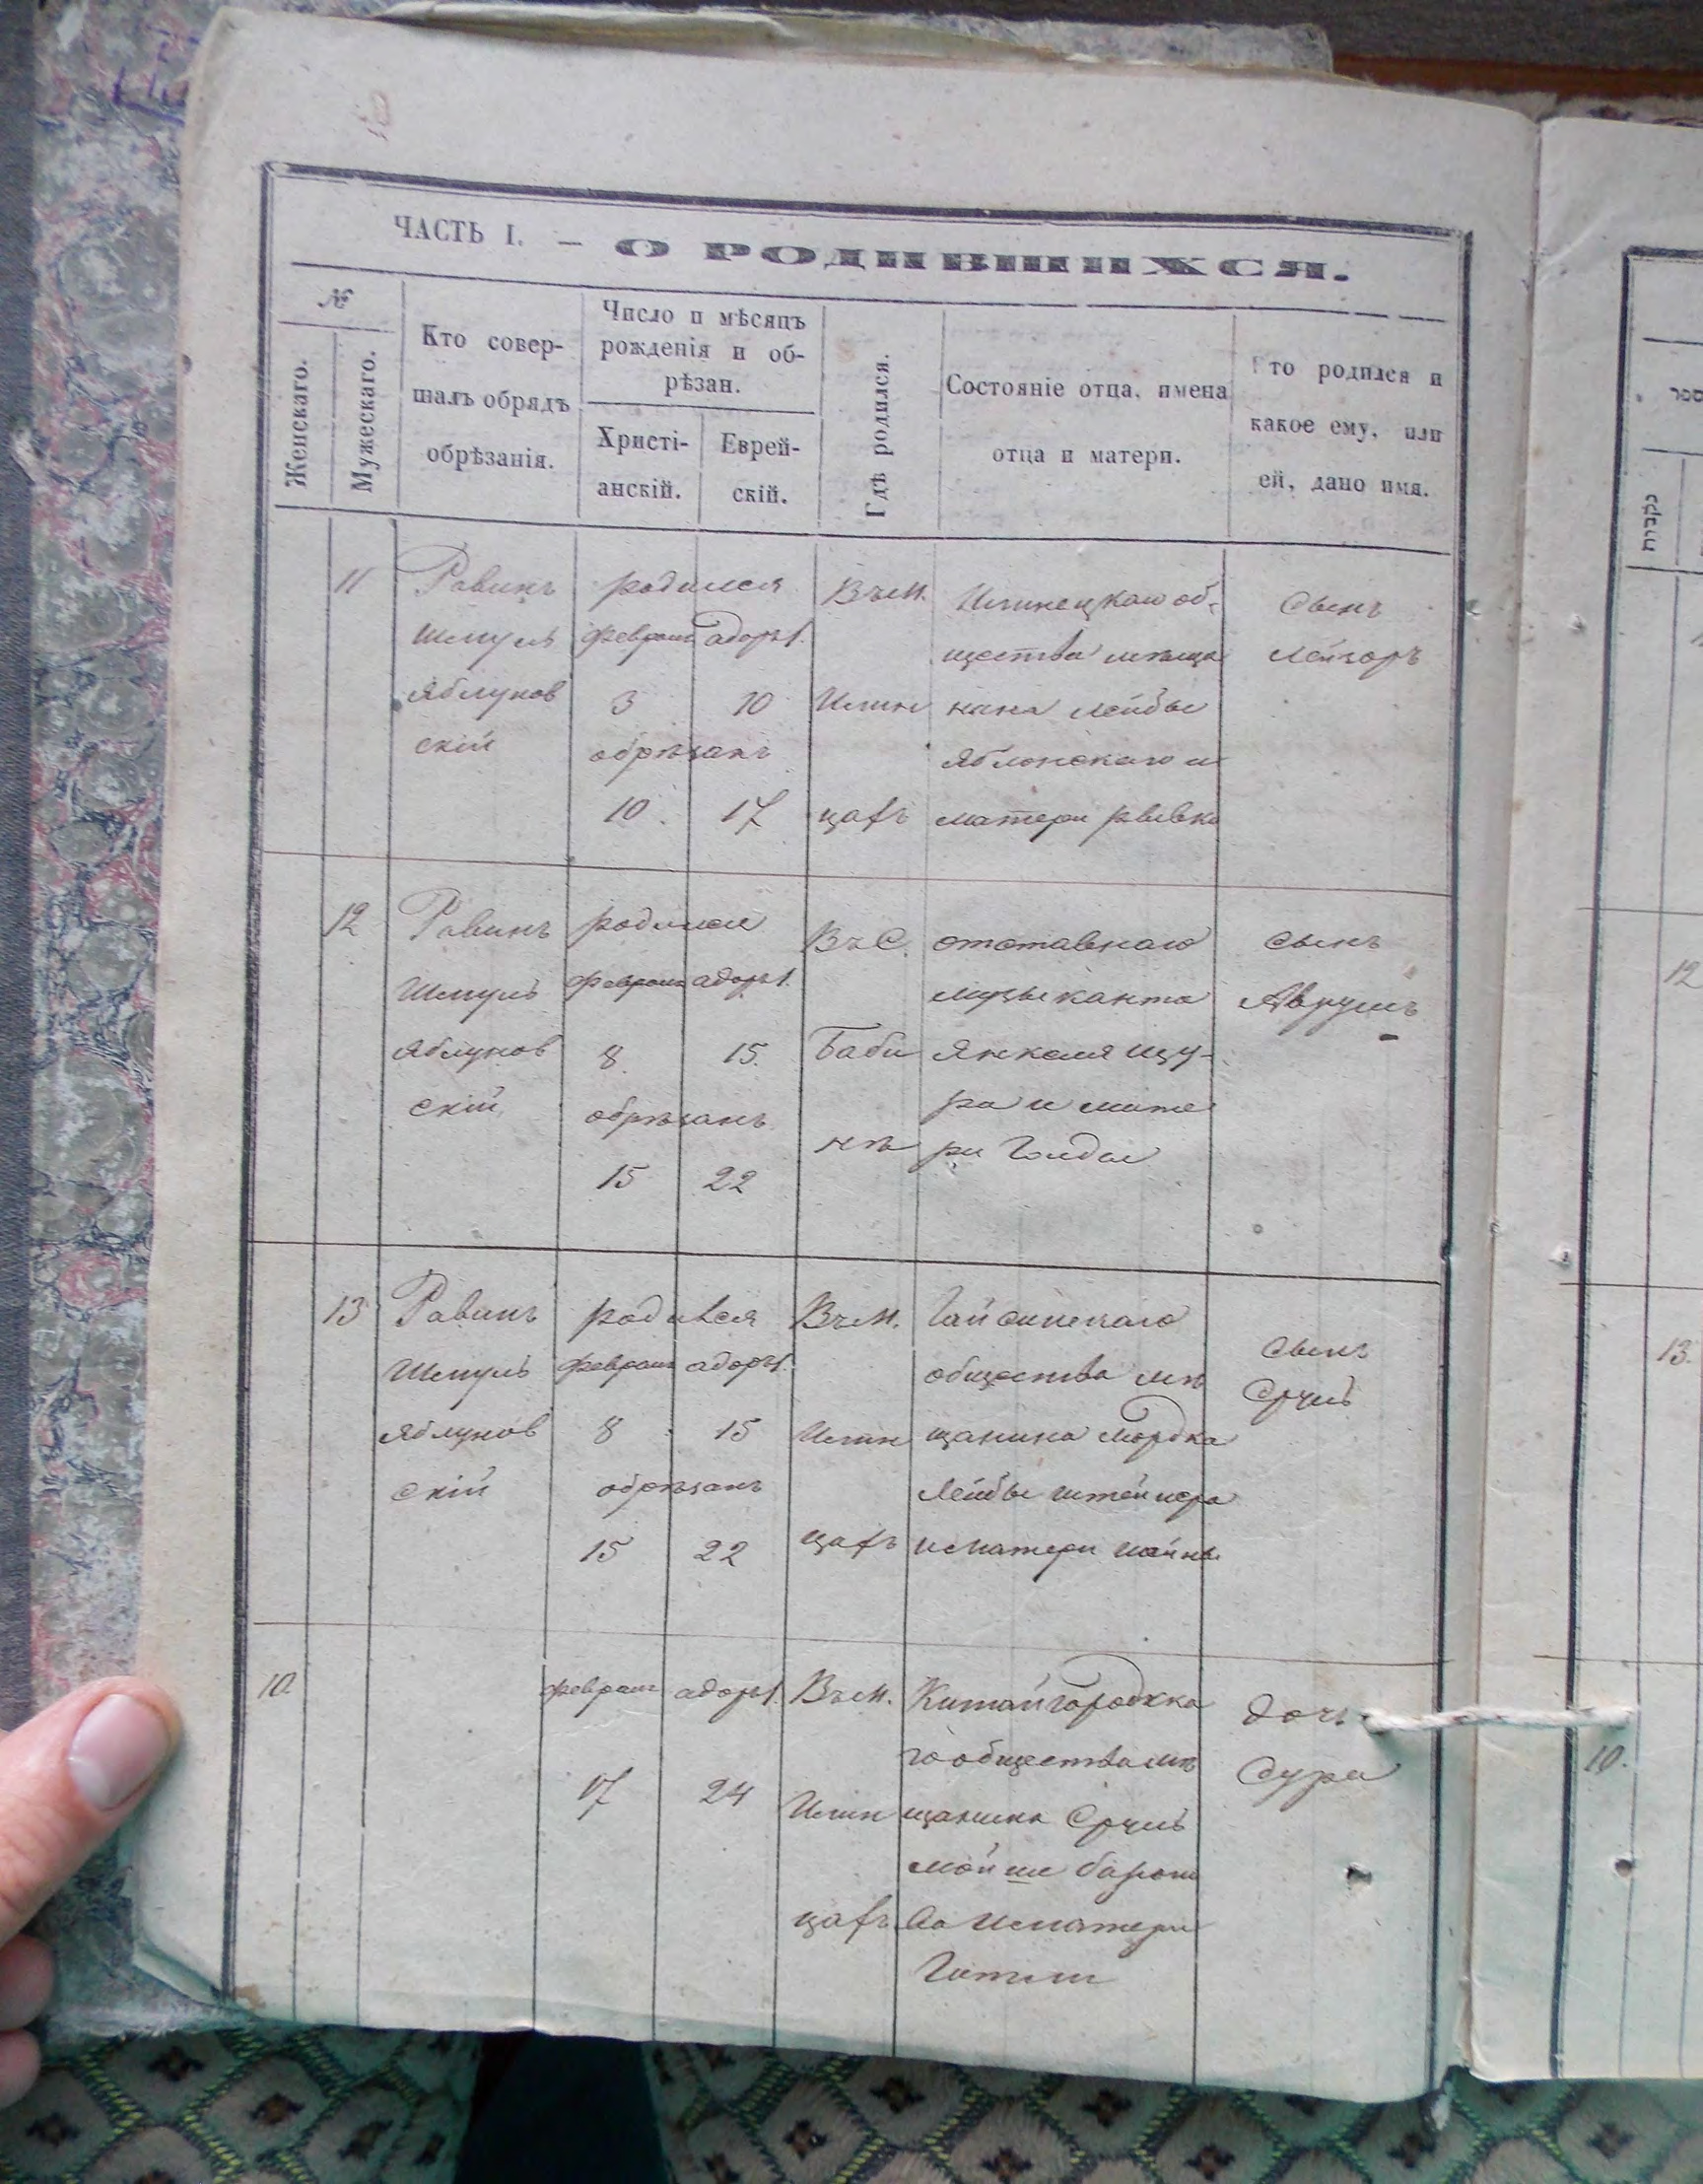 ЧАСТЬ I. — О РОДИВШИХСЯ.
№
Женскаго.
Мужескаго.
Кто совер-
шалъ обрядъ
обрѣзанія.
Число и мѣсяцъ
рожденія и об-
рѣзан.
Христі-
анскій.
Еврей-
скій.
Гдѣ родился.
Состояніе отца, имена
отца и матери.
то родился и
какое ему, или
ей, дано имя.
11
Равинъ
Шмуль
Яблунов
скій
родился
февраля адоръ 1.
3 10
обрѣзанъ
10. 17
Въ м.
Илин
цахъ
Илинецкаго об-
щества мѣща
нина Лейбы
Яблонскаго и
матери Ривки
Сынъ
Лейзоръ
12
Равинъ
Шмуль
Яблунов
скій
родился
февраля адоръ 1.
8. 15.
обрѣзанъ
15 22
Въ С.
Баби
нѣ
отставнаго
музыканта
Янкеля Щу-
ра и мате
ри Голды
сынъ
Аврумъ
13
Равинъ
Шмуль
Яблунов
скій
родился
февраля адоръ 1.
8 15
обрѣзанъ
15 22
Въ м.
Илин
цахъ
Гайсинскаго
общества мѣ
щанина Мордка
Лейбы Штейнера
и матери
сынъ
Сруль
10.
февраля адоръ 1.
17 24
Въ м.
Илин
цахъ
Китайгородска
го общества мѣ
щанина Сруль
Мойше
и матери
Гитли
дочь
Сура
ספר
נקבות
12
13.
10.